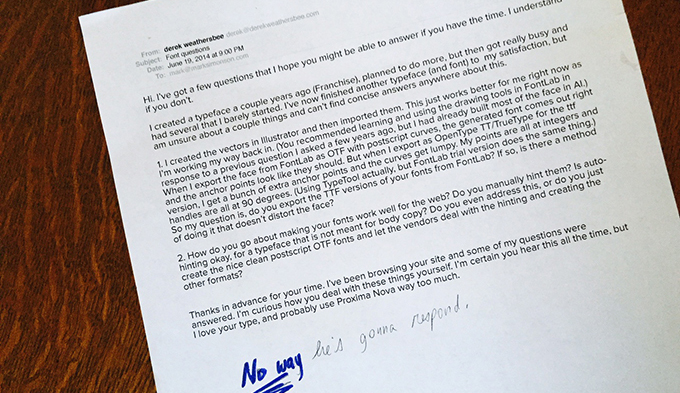 From: derek weatherabee derek@derekweatherabee.com
Subject: Font questions
Date: June 19, 2014 at 9:00 PM
To: mark@marksimonson.com
Hi. I've got a few questions that I hope you might be able to answer if you have the time. I understand
if you don't.
I created a typeface a couple years ago (Franchise), planned to do more, but then got really busy and
had several that I barely started. I've now finished another typeface (and font) to my satisfaction, but
am unsure about a couple things and can't find concise answers anywhere about this.
1. I created the vectors in Illustrator and then imported them. This just works better for me right now as
I'm working my way back in. (You recommended learning and using the drawing tools in FontLab in
response to a previous question I asked a few years ago, but I had already built most of the face in AI.)
When I export the face from FontLab as OTF with postscript curves, the generated font comes out right
and the anchor points look like they should. But when I export as OpenType TT/TrueType for the ttf
version, I get a bunch of extra anchor points and the curves get lumpy. My points are all at integers and
handles are all at 90 degrees. (Using TypeTool actually, but FontLab trial version does the same thing.)
So my question is, do you export the TTF versions of your fonts from FontLab? If so, is there a method
of doing it that doesn't distort the face?
2. How do you go about making your fonts work well for the web? Do you manually hint them? Is auto-
hinting okay, for a typeface that is not meant for body copy? Do you even address this, or do you just
create the nice clean postscript OTF fonts and let the vendors deal with the hinting and creating the
other formats?
Thanks in advance for your time. I've been browsing your site and some of my questions were
answered. I'm curious how you deal with these things yourself. I'm certain you hear this all the time, but
I love your type, and probably use Proxima Nova way too much.
No way he's gonna respond.